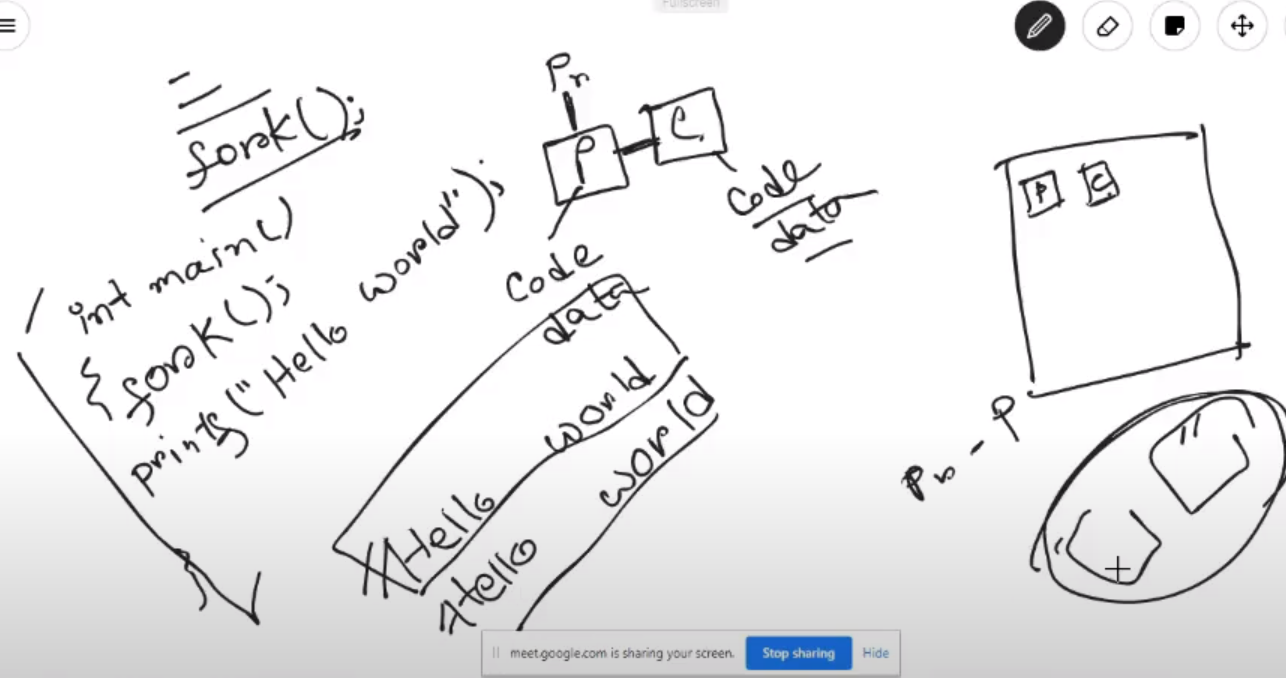 Fullscreen
fork();
int main()
{ fork();
printf("Hello world");
}
Pr
P
C
Code
data
Code
data
Hello world
Hello world
P
C
Pr - P
meet.google.com is sharing your screen.
Stop sharing
Hide